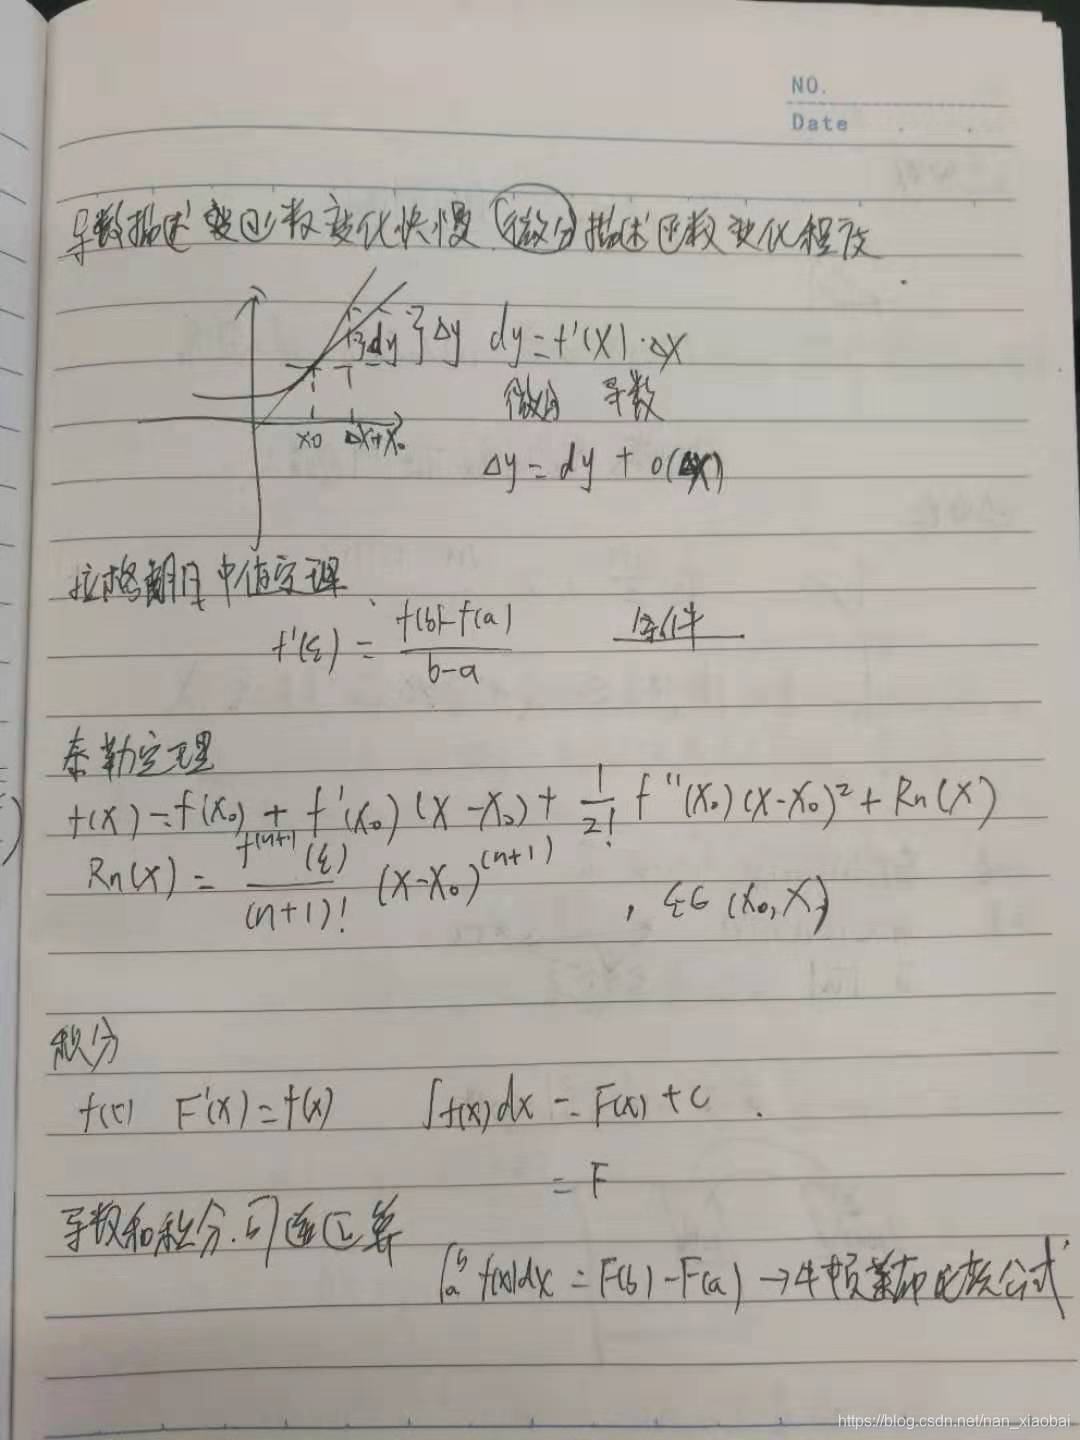 NO.
Date
导数描述 函数变化快慢 微分 描述函数变化程度
dy } Δy dy = f'(X)·ΔX
微分 导数
x0 ΔX+X0
Δy = dy + o(ΔX)
拉格朗日中值定理
f'(ξ) = \frac{f(b)-f(a)}{b-a} 条件
泰勒定理
f(X) = f(X0) + f'(X0)(X-X0) + \frac{1}{2!} f''(X0)(X-X0)^2 + Rn(X)
Rn(X) = \frac{f^{(n+1)}(ξ)}{(n+1)!} (X-X0)^{(n+1)} , ξ∈(X0,X)
积分
F'(X) = f(x) ∫f(x)dx = F(x) + C .
= F
导数和积分.
∫_a^b f(x)dx = F(b) - F(a) → 牛顿莱布 公式
https://blog.csdn.net/nan_xiaobai